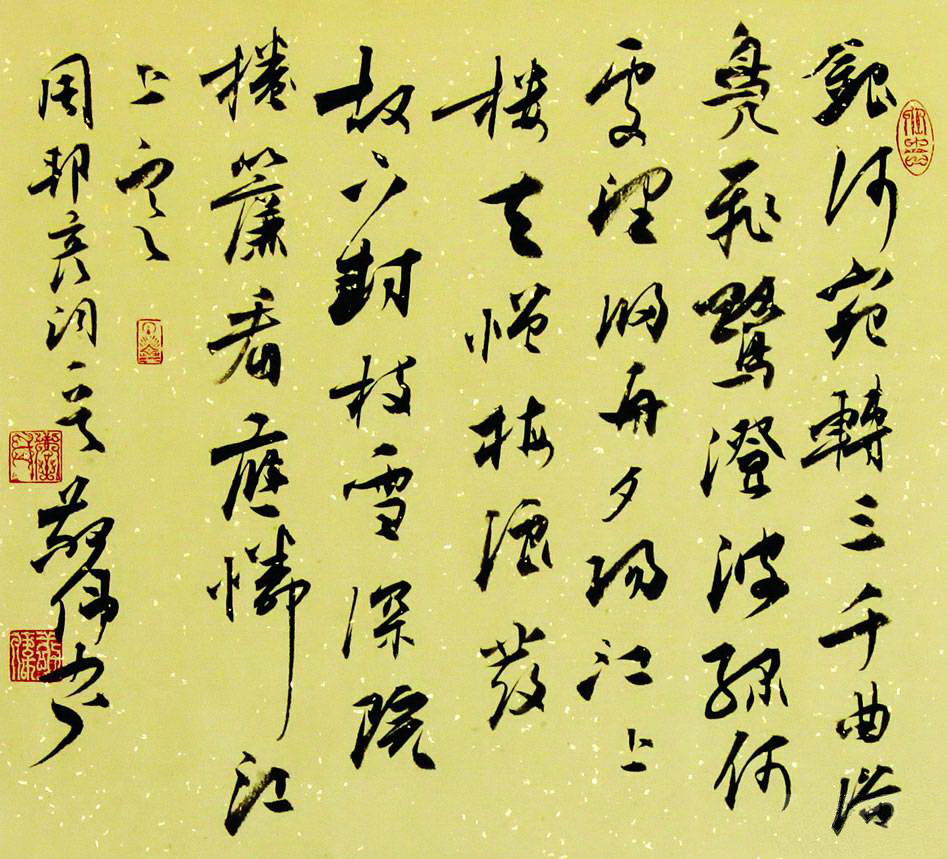 銀河宛轉三千曲浴
鳧飛鷺澄波綠何
處望歸舟夕陽江上
樓天憎梅浪發
故下封枝雪深院
捲簾看應憐江
上寒
周邦彥詞一首 敬偉書